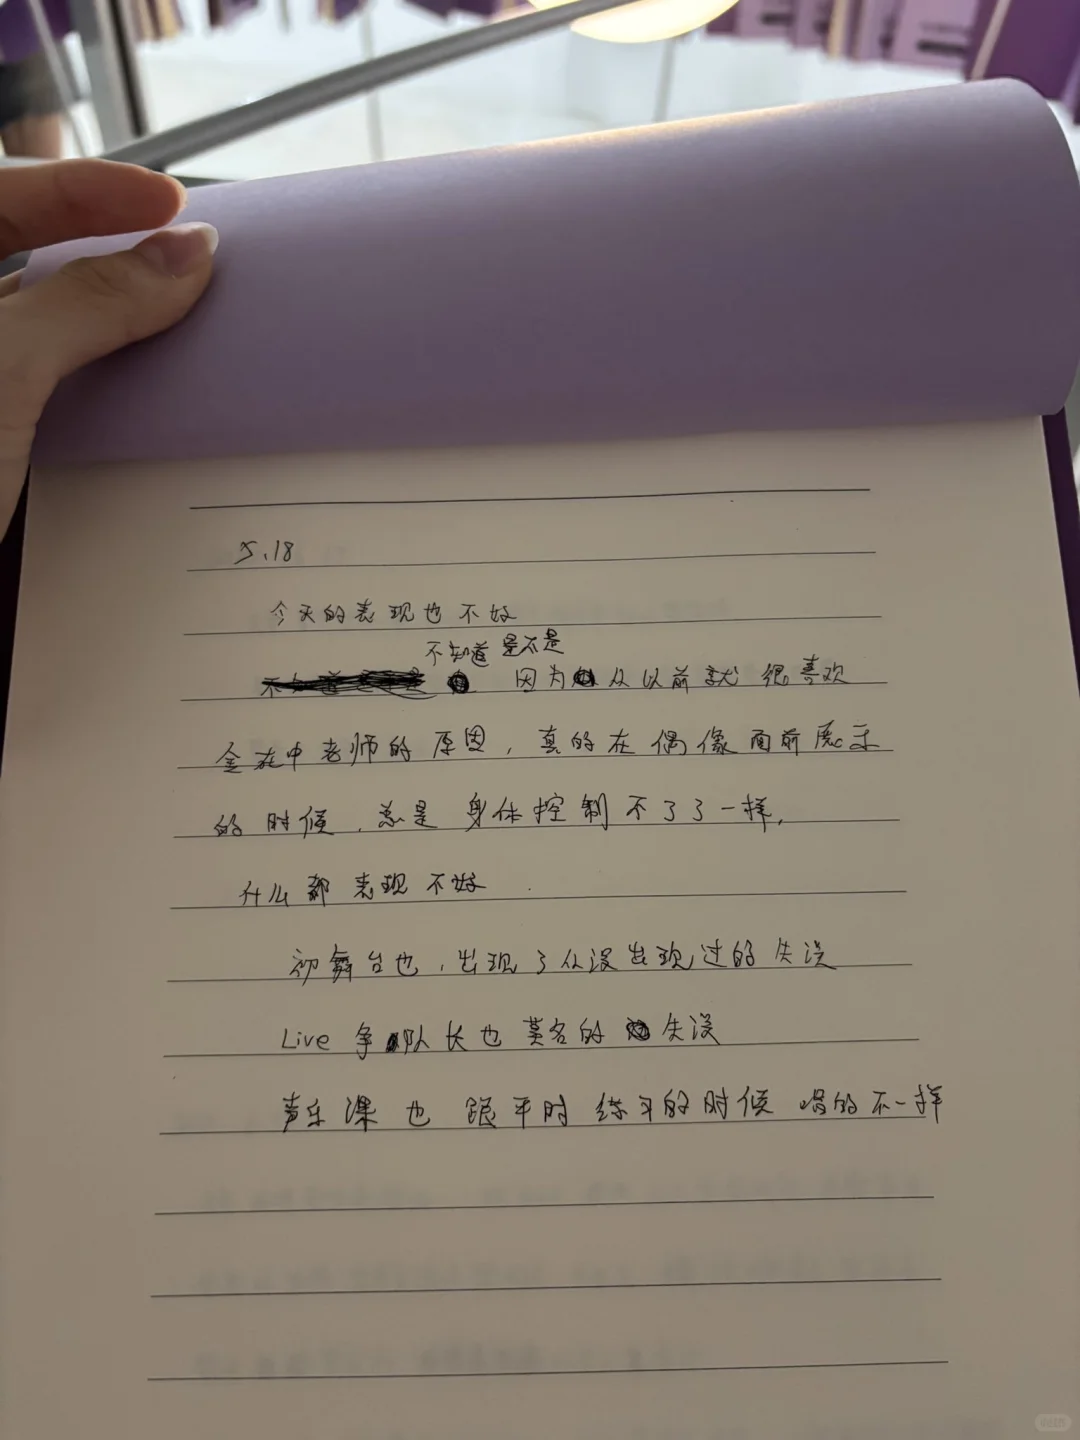 5.18
今天的表现也不好
不知道 是不是
因为 从以前就 很喜欢
金在中老师的原因，真的在偶像面前展示
的时候，总是身体控制不了了一样，
什么都表现不好
初舞台也，出现了从没出现过的失误
Live 争队长也莫名的 失误
声乐课也 跟平时 练习的时候 唱的不一样